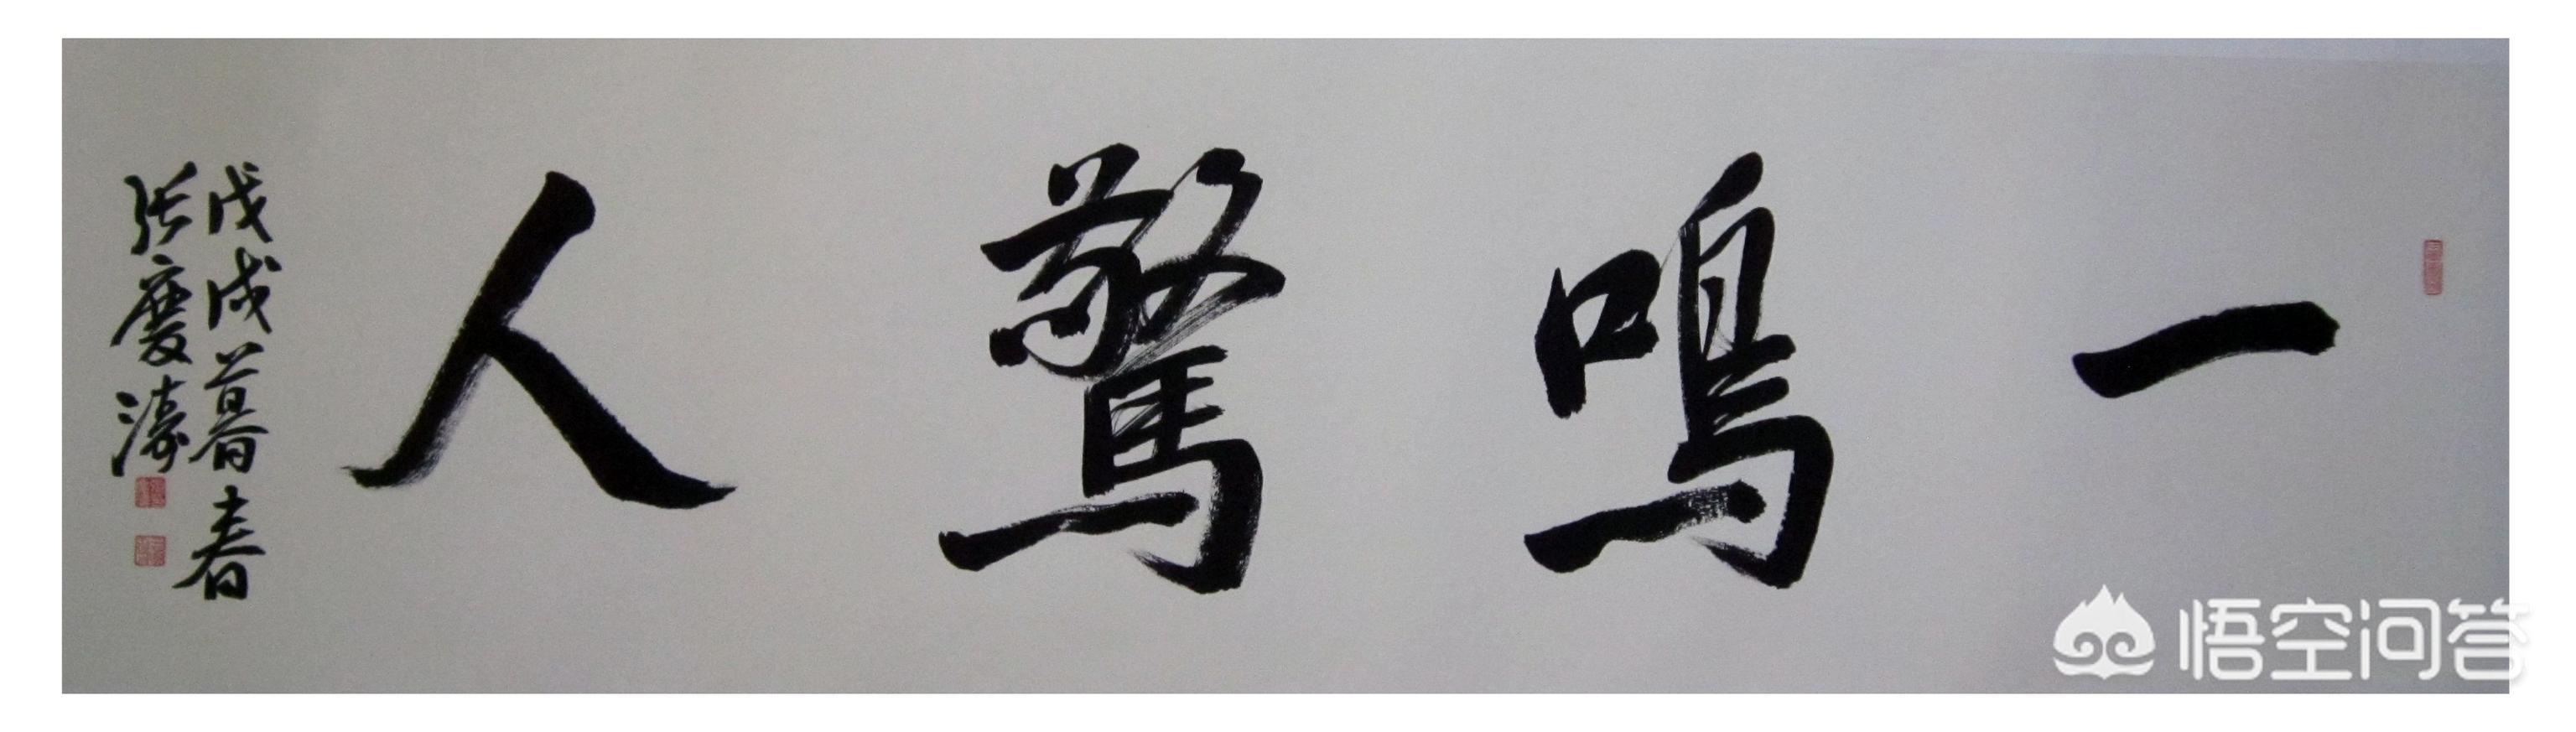 一鳴驚人
戊戌暮春
張慶濤
悟空问答